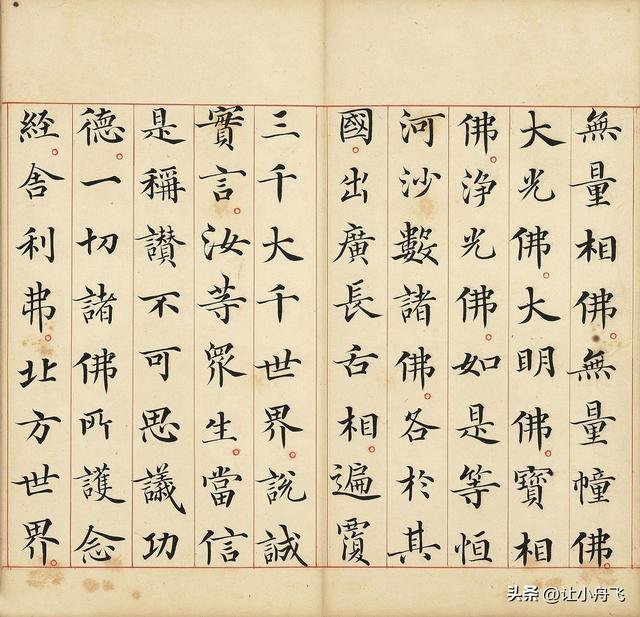 無量相佛。無量幢佛。
大光佛。大明佛。寶相
佛。淨光佛。如是等恒
河沙數諸佛。各於其
國。出廣長舌相。遍覆
三千大千世界。說誠
實言。汝等眾生。當信
是稱讃不可思議功
德。一切諸佛所護念
経。舍利弗。北方世界。
头条 @让小舟飞